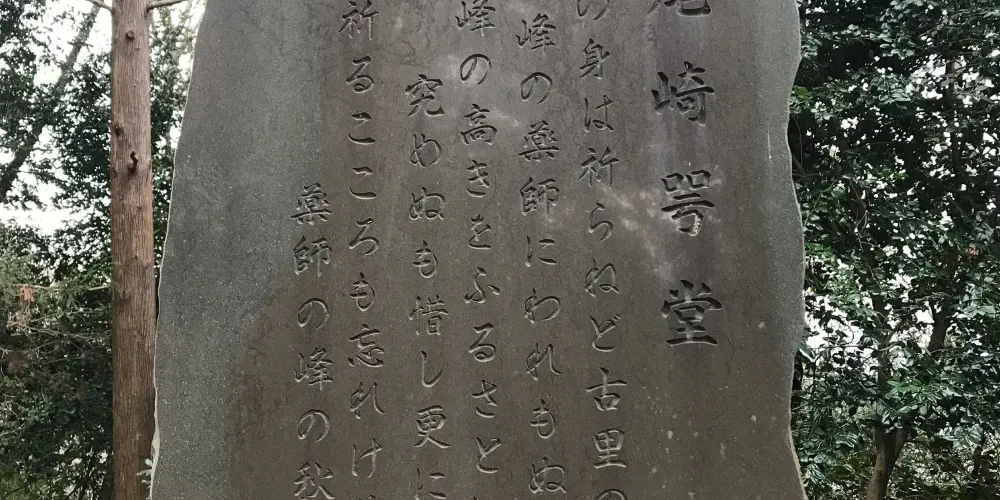 尾崎咢堂
の身は祈らねど古里の
峰の薬師にわれもぬ
峰の高きをふるさと
究めぬも惜し更に
祈るこころも忘れけ
薬師の峰の秋